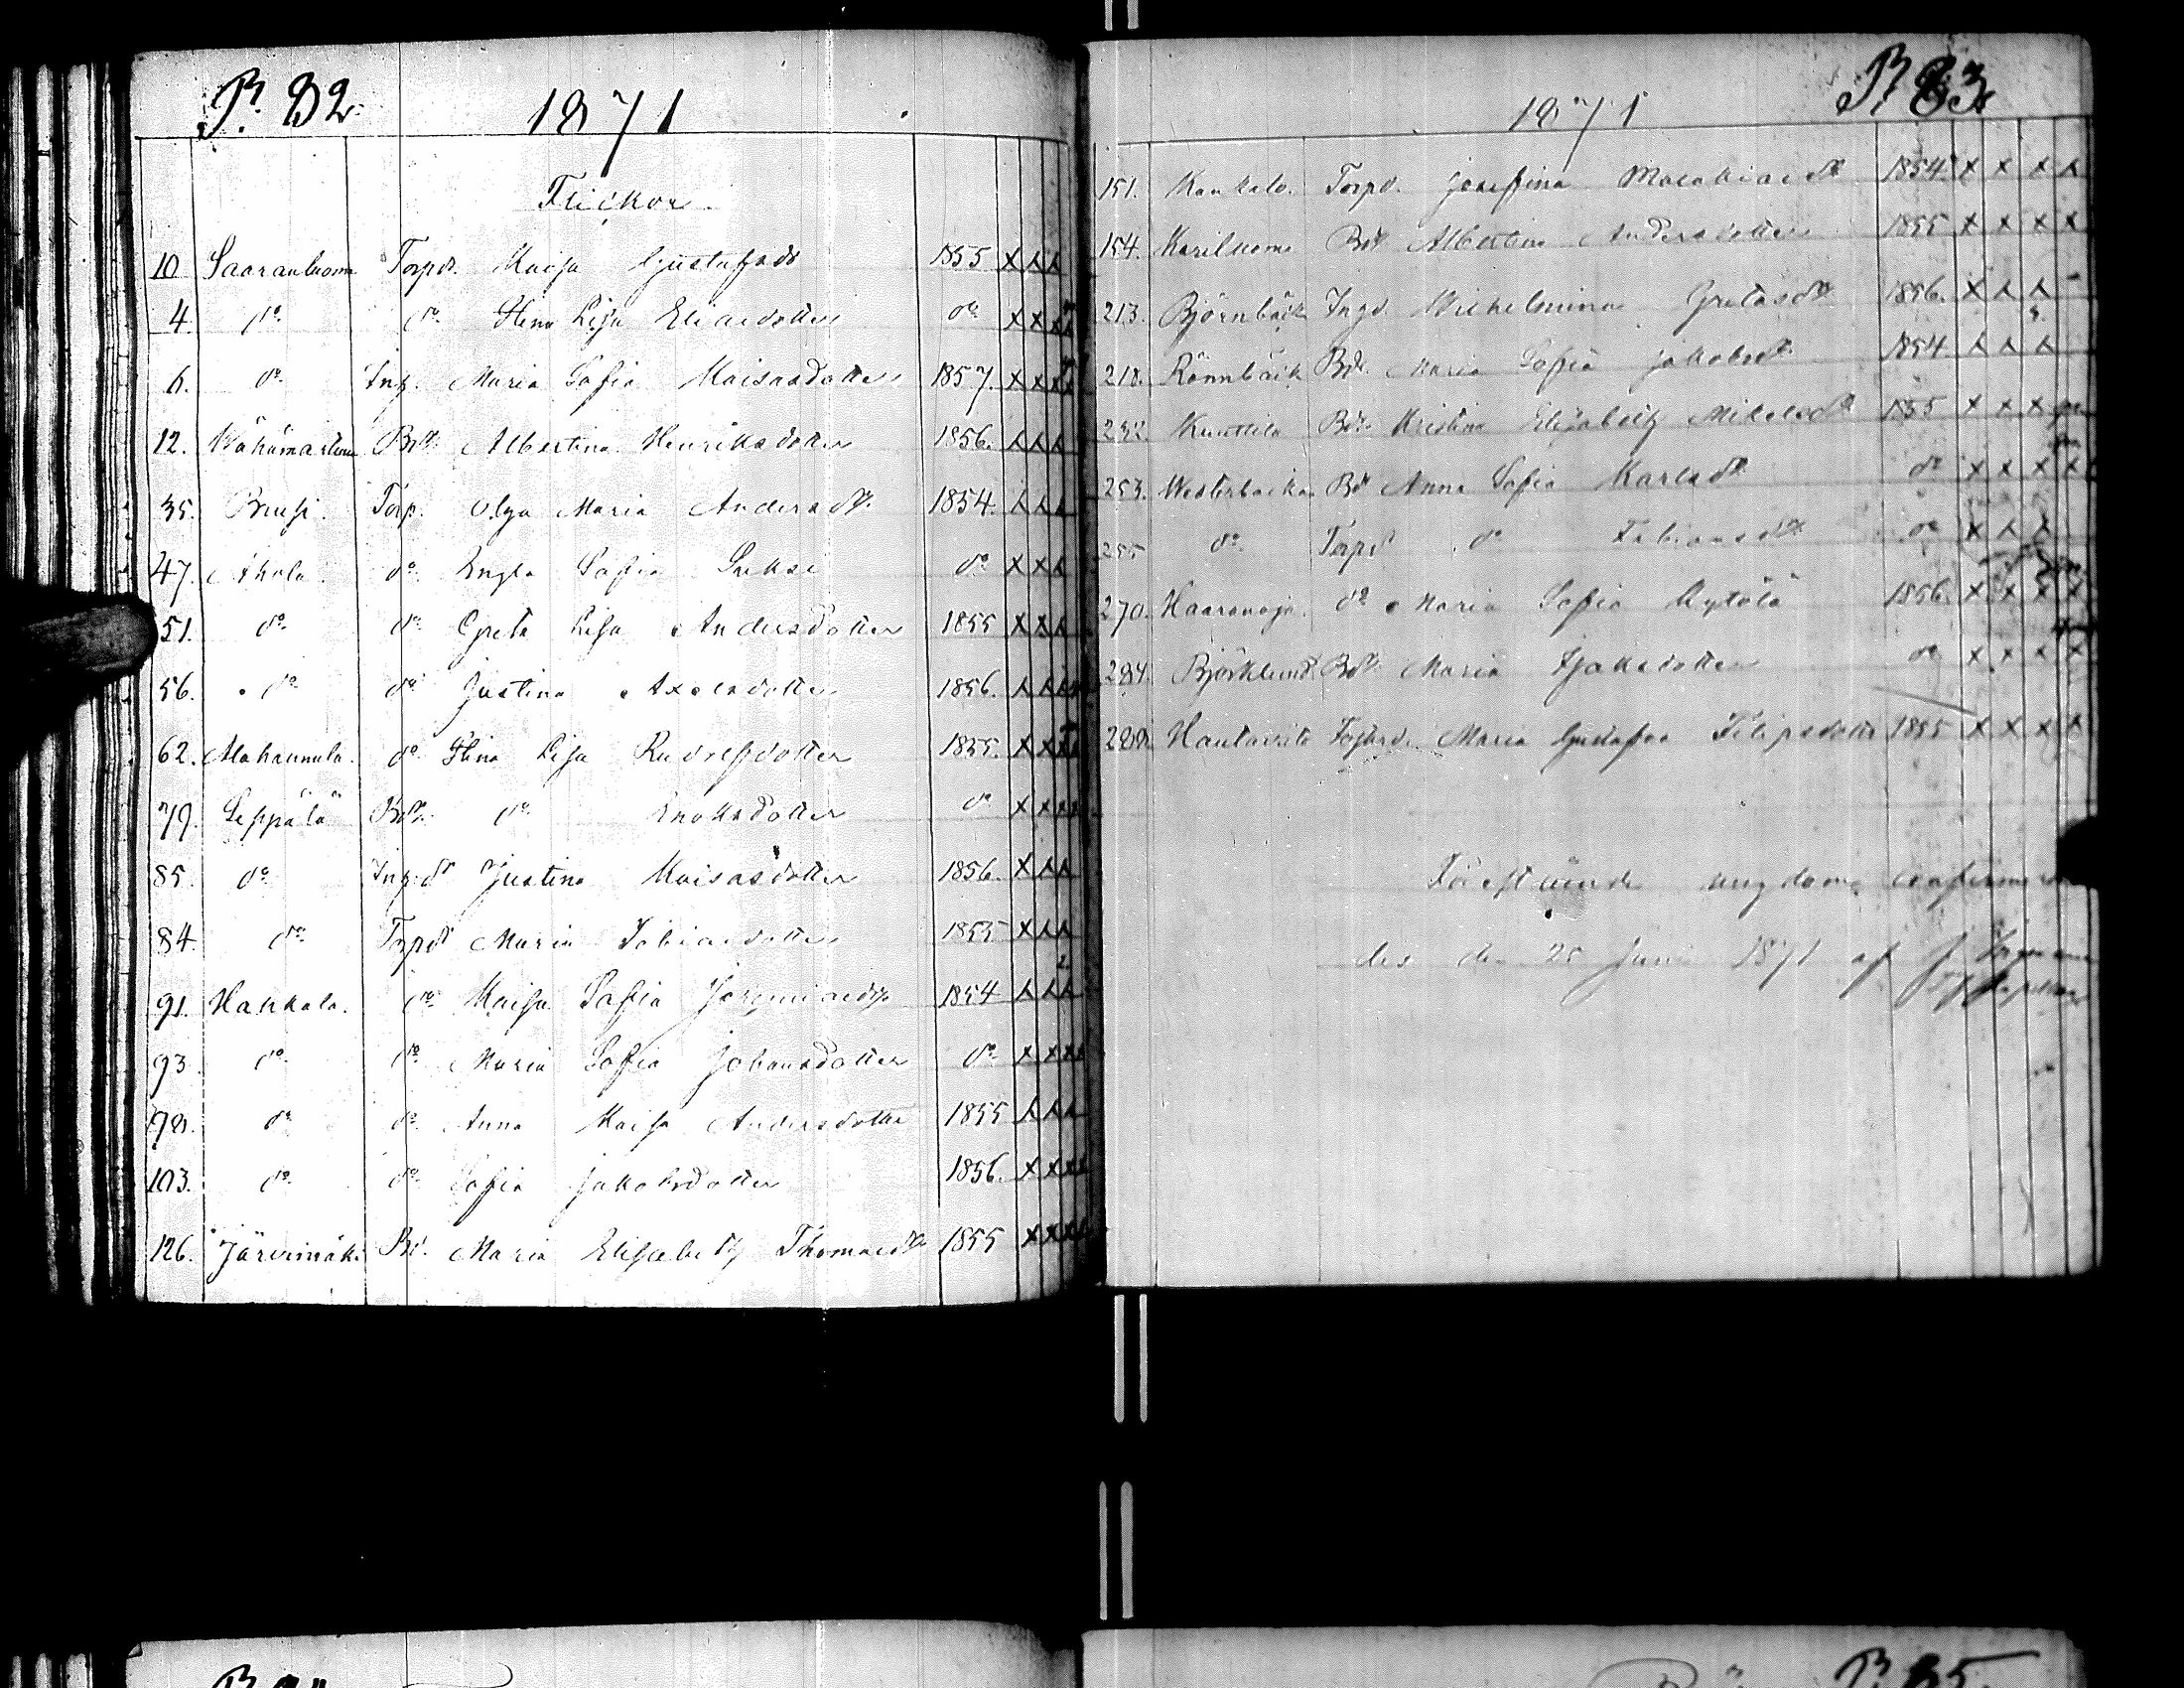 P. 82.
1871
Flickor.
10 Saaranluoma Torpdr. Maija Gustafsdr 1855 x x x
4. do do Stina Lisa Eliaedotter do x x x x
6. do Ing. Maria Sofia Maisasdotter 1857. x x x x
12. Wähämartinen Bdr. Albertina Henriksdotter 1856. x x x
35. Brusi. Torp. Olga Maria Andersdr. 1854. x x x
47. Ahola. do Engla Sofia do x x x
51. do do Greta Lisa Andersdotter 1855 x x x
56. do do Justina Axelsdotter 1856. x x x x
62. Alahannula. do Stina Lisa 1855. x x x x
79. Leppälä Bdr. do Enoksdotter do x x x x
85. do Ingdr Justina Maisasdotter 1856. x x x
84. do Torpdr Maria Tobiaedotter 1855 x x x
91. Hankala. do Maija Sofia Jeremiaedr 1854 x x x 2.
93. do do Maria Sofia Johansdotter do x x x x
98. do do Anna Maija Andersdotter 1855 x x x
103. do do Sofia Jakobsdotter 1856. x x x x
126. Järvimäki Bd. Maria Elisabeth Thomaedr 1855 x x x x
P. 83.
1871
151. Kankalo. Torpd. Josefina Malakiaedr 1854. x x x x
154. Karilkomi Bdr Albertina Andersdotter 1855 x x x x
213. Björnbäck Ingd. Wilhelmina Gretasdr 1856. x x x
218. Rönnbäck Bdr. Maria Sofia Jakobsdr. 1854 x x x
232. Knuttila Bdr. Kristina Elisabeth Mikelsdr 1855 x x x
253. Westerbacka Bdr Anna Sofia Karlsdr. do x x x x
255 do Torpdr do Fabiansdr do x x x
270. Haaranoja. do Maria Sofia Mytölä 1856. x x x x
284. Björklund Bdr. Maria Isaksdotter do x x x x
288. Hautaviita Maria Gustafva Filipsdotter 1855 x x x x
Förestående ungdom confirmera
des den 25 Juni 1871 af J.